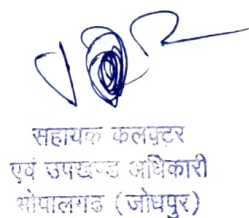 सहायक कलक्टर
एवं उपखण्ड अधिकारी
भोपालगढ (जोधपुर)